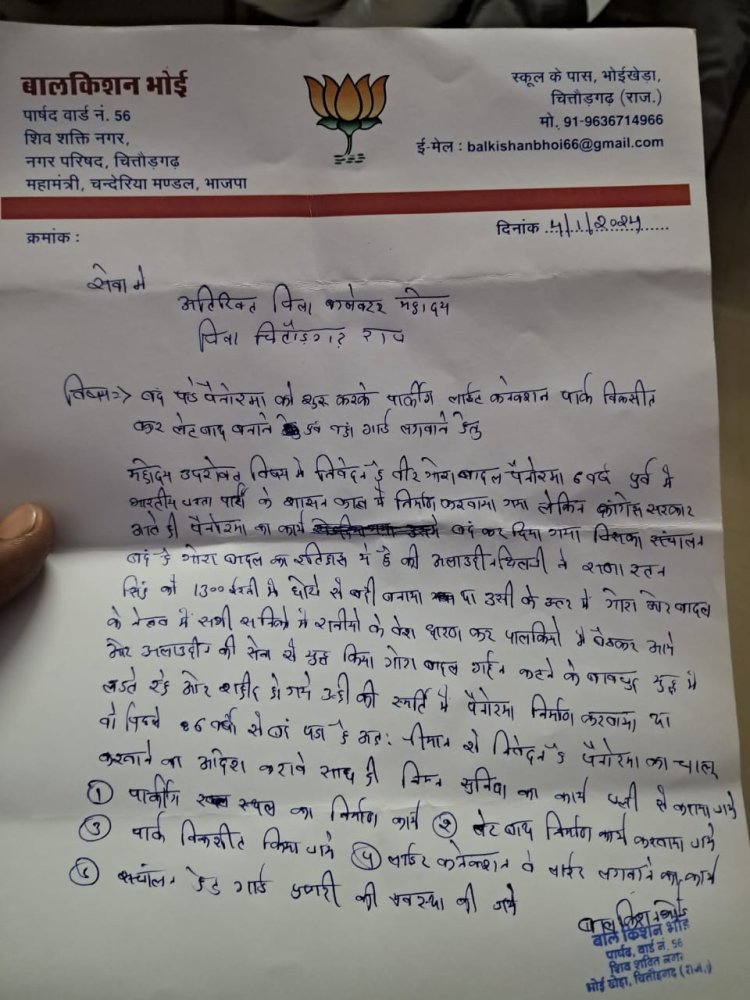 बालकिशन भोई
पार्षद वार्ड नं. 56
शिव शक्ति नगर,
नगर परिषद, चित्तौड़गढ़
महामंत्री, चन्देरिया मण्डल, भाजपा
स्कूल के पास, भोईखेड़ा,
चित्तौड़गढ़ (राज.)
मो. 91-9636714966
ई-मेल : balkishanbhoi66@gmail.com
क्रमांक :
दिनांक
सेवा मे
अतिरिक्त जिला कलेक्टर महोदय
जिला चितौड़गढ़ राज
विषय=> बदं पडे पैनोरमा को शुरू करके पार्कींग लाईट कनेक्शन पार्क विकसीत
कर लेट बाथ बनाने एवं गार्ड लगवाने हेतु
महोदय उपरोक्त विषय मे निवेदन है वीर गोरा बादल पैनोरमा 6 वर्ष पूर्व मे
भारतीय जनता पार्टी के शासन काल मे निर्माण करवाया गया लेकिन कांग्रेस सरकार
आते ही पैनोरमा का कार्य बदं कर दिया गया जिसका संचालन
बदं है गोरा बादल का इतिहास मे है की अलाउदीन खिलजी ने राणा रतन
सिंह को 1300 ईस्वी मे धोखे से बदी बनाया था उसी के उत्तर मे गोरा और बादल
के मे सभी मे रानीयो के वेश धारण कर पालकियो मे बैठकर आये
और अलाउदीन की सेना से युद्ध किया गोरा बादल गर्दन कटने के बावजुद युद्ध मे
लडते रहे और शहीद हो गये उन्ही की स्मृति मे पैनोरमा निर्माण करवाया था
जो पिछले 6 वर्षो से बदं पडा है अतः श्रीमान से निवेदन है पैनोरमा का चालू
करवाने का आदेश करावे साथ ही निम्न सुविधा का कार्य जल्दी से कराया जाये
① पार्कींग स्थल का निर्माण कार्य ② लेट बाथ निर्माण कार्य करवाया जाये
③ पार्क विकसीत किया जाये ④ लाईट कनेक्शन व लाईट लगवाने का कार्य
⑤ संचालन हेतु गार्ड की व्यवस्था की जाये
बाल किशन भोई
पार्षद, वार्ड नं. 56
शिव शक्ति नगर
भोई खेड़ा, चित्तौड़गढ़ (राज.)